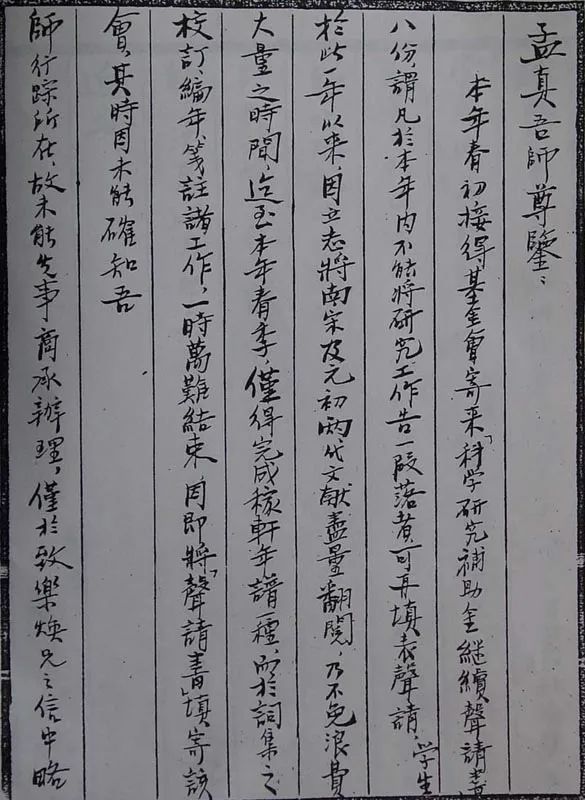 孟真吾師尊鑒：
本年春初接得基金會寄来「科学研究補助金継續聲請書」
八份，謂凡於本年内不能將研究工作告一段落者可再填表聲請。学生
於此一年以来，因立志將南宋及元初兩代文献盡量翻閲，乃不免浪費
大量之時間，迄至本年春季，僅得完成稼軒年譜一種，而於詞集之
校訂、編年、箋註諸工作，一時萬難結束，因即將「聲請書」填寄該
會，其時因未能確知吾
師行踪所在，故未能先事商承辦理，僅於致樂焕兄之信中略